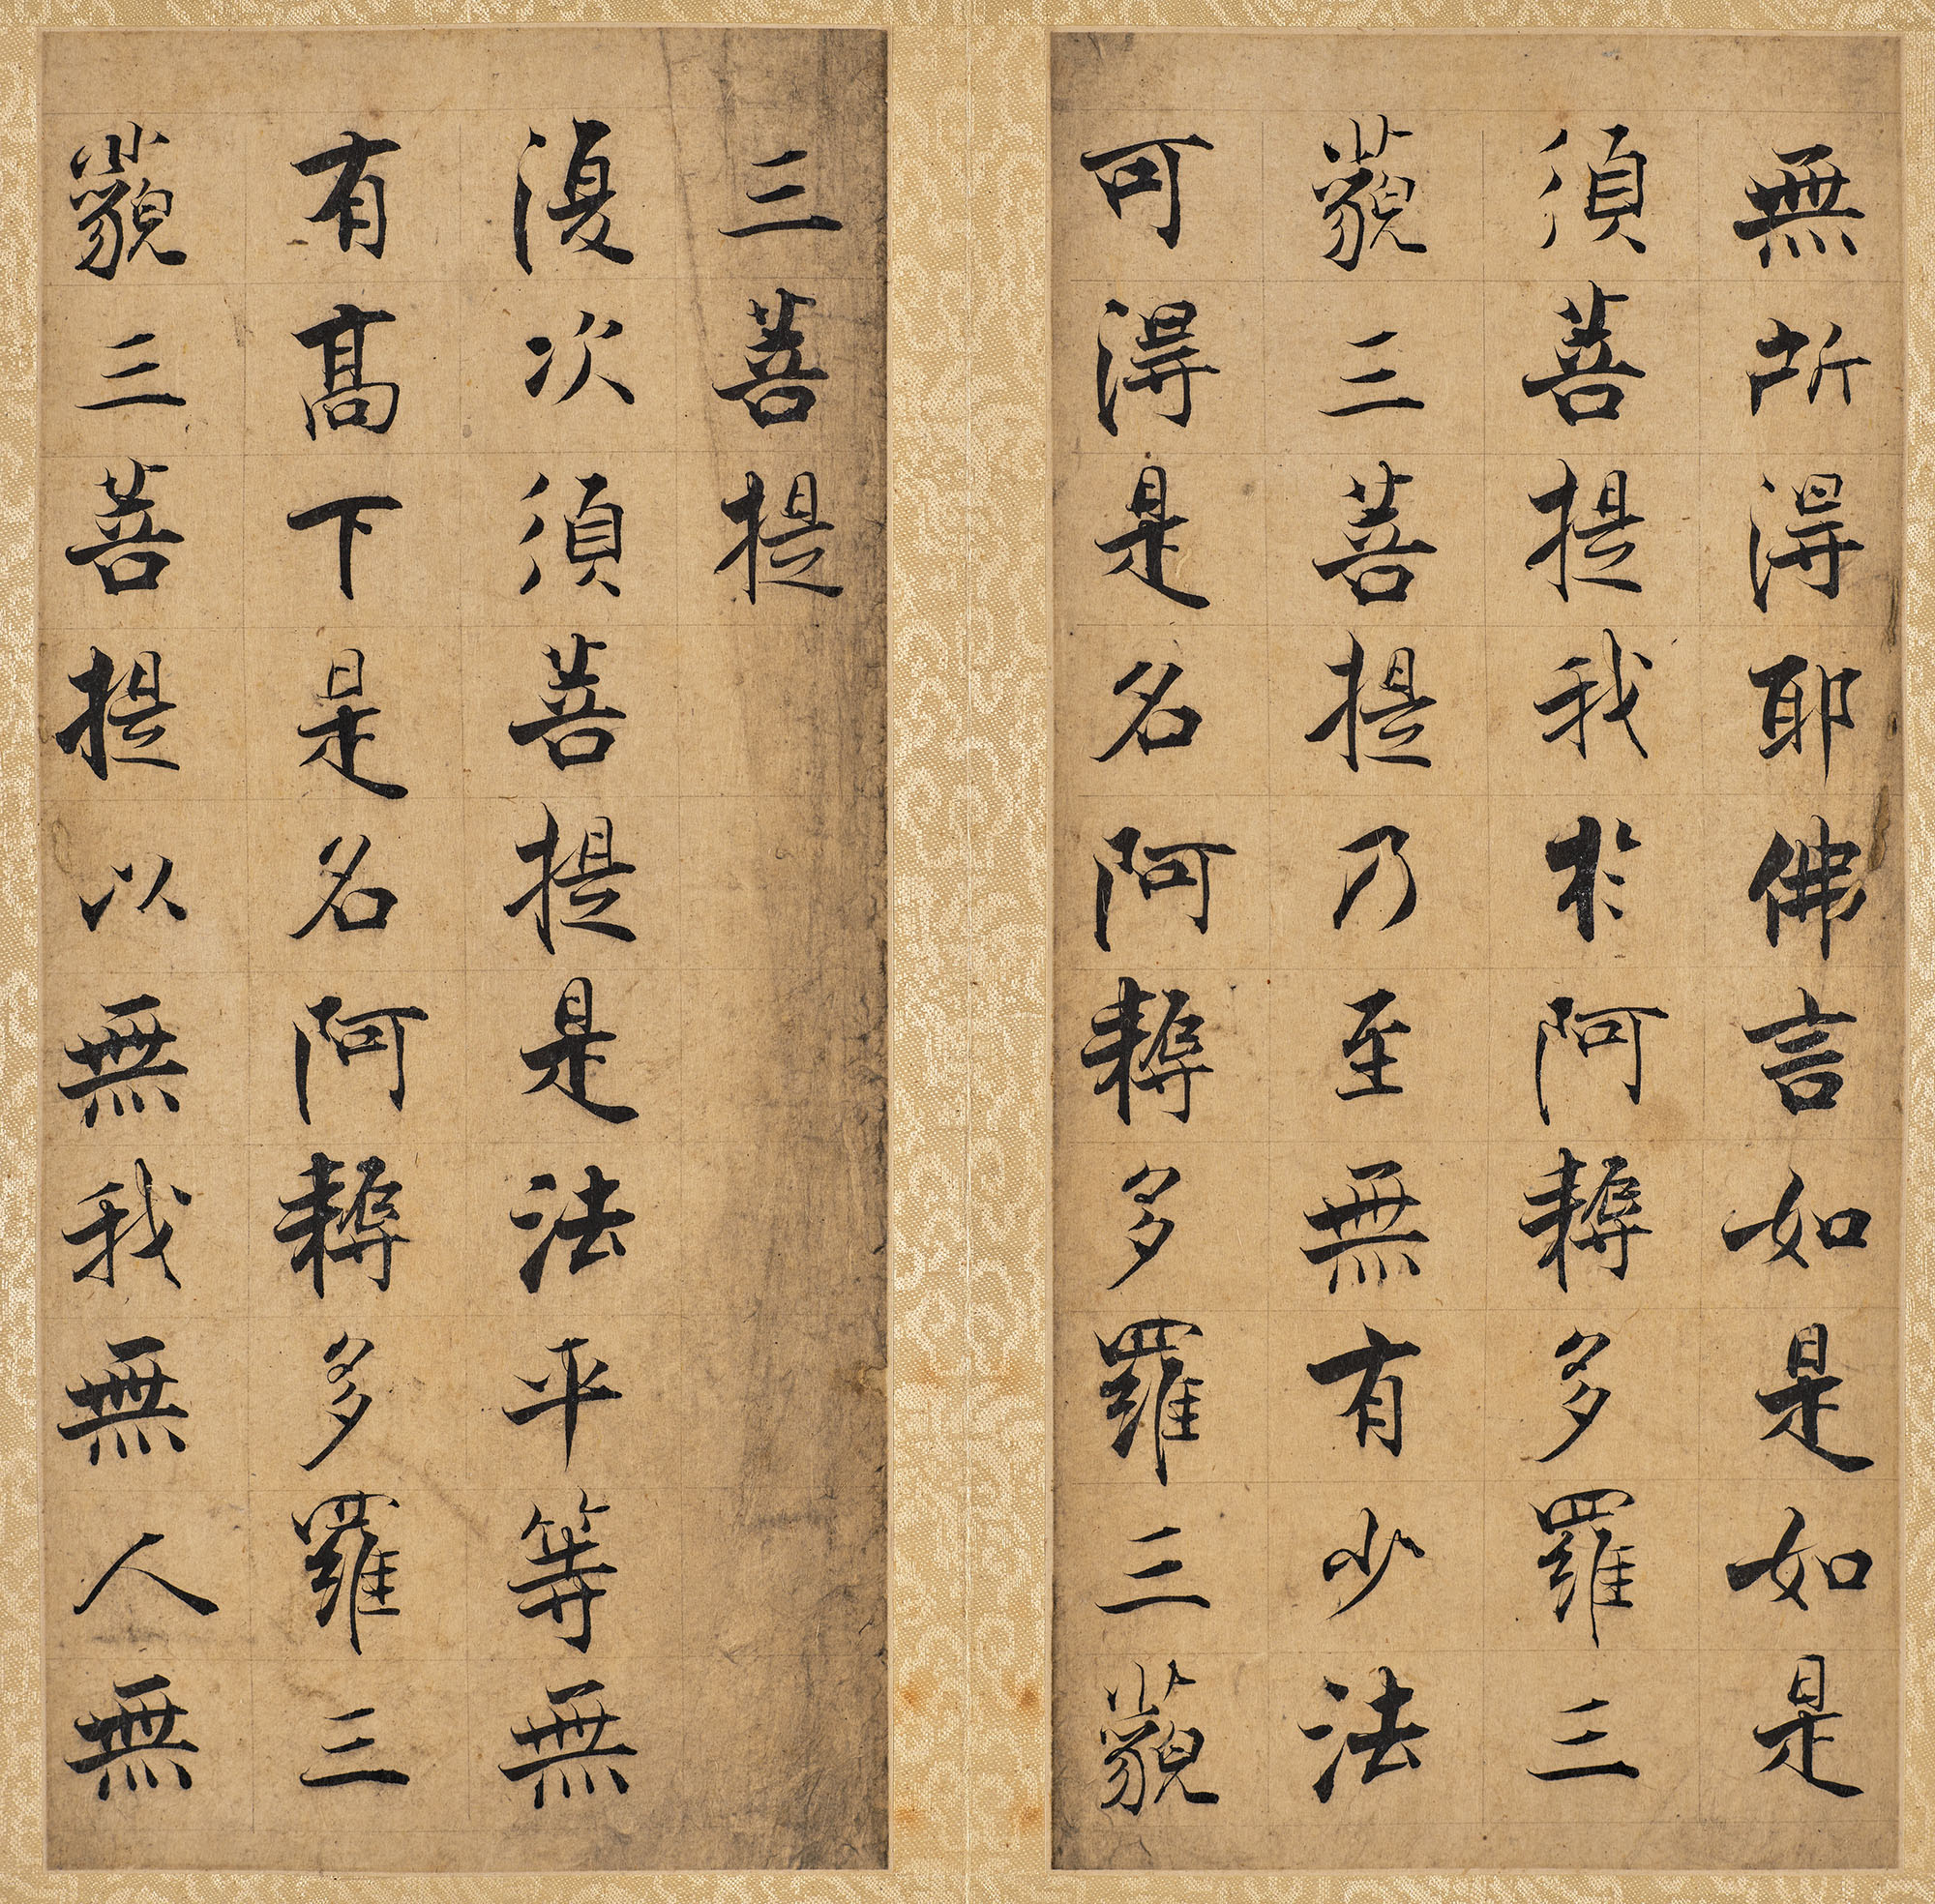 無所得耶佛言如是如是
須菩提我於阿耨多羅三
藐三菩提乃至無有少法
可得是名阿耨多羅三藐
三菩提
復次須菩提是法平等無
有高下是名阿耨多羅三
藐三菩提以無我無人無